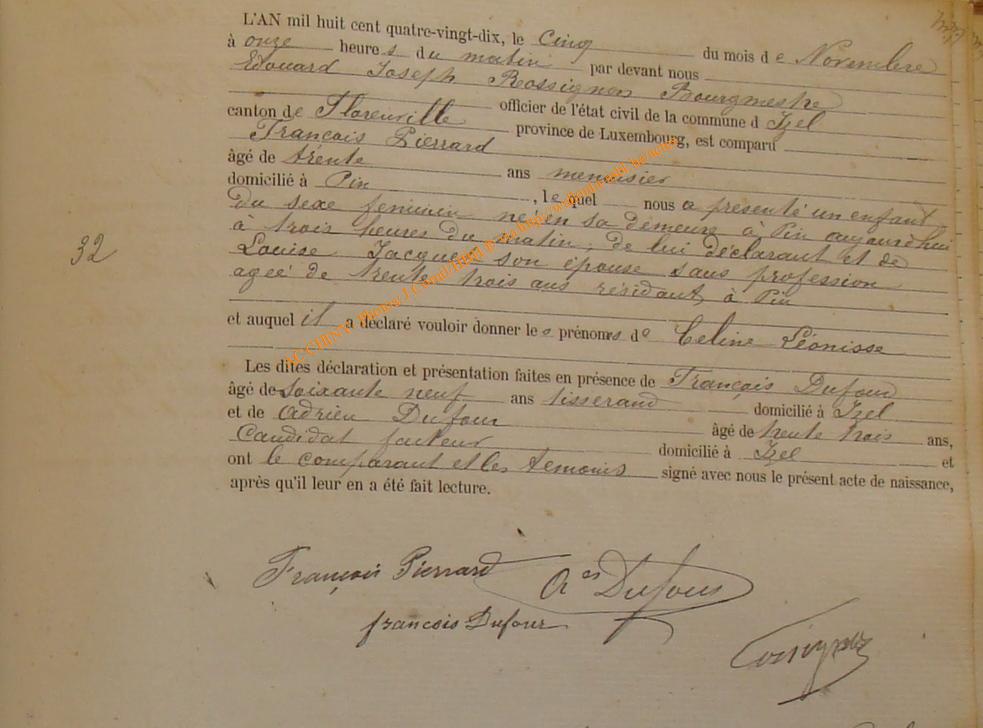 L'AN mil huit cent quatre-vingt-dix, le Cinq du mois de Novembre
à onze heures du matin par devant nous
Edouard Joseph Rossignon Bourgmestre
officier de l'état civil de la commune d Izel
canton de Florenville province de Luxembourg, est comparu
François Pierrard
âgé de trente ans menuisier
domicilié à Pin, lequel nous a présenté un enfant
du sexe féminin né en sa demeure à Pin aujourdhui
à trois heures du matin, de lui déclarant et de
Louise Jacques son épouse sans profession
agée de trente trois ans résidant à Pin
32
et auquel il a déclaré vouloir donner les prénoms de Celine Léonisse
Les dites déclaration et présentation faites en présence de François Dufour
âgé de soixante neuf ans tisserand domicilié à Izel
et de Adrien Dufour âgé de trente trois ans,
Candidat facteur domicilié à Izel et
ont le comparant et les témoins signé avec nous le présent acte de naissance,
après qu'il leur en a été fait lecture.
François Pierrard Ad Dufour
françois Dufour